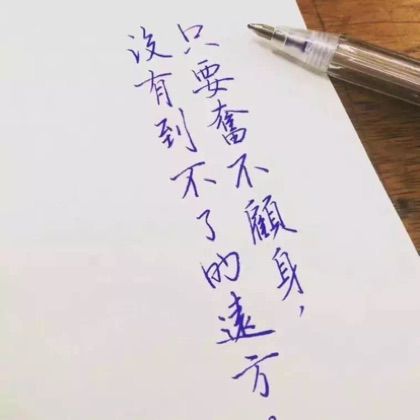 只要奮不顧身，
沒有到不了的遠方。